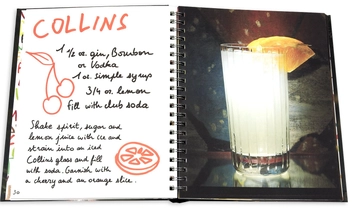 COLLINS
1 1/2 oz. gin, Bourbon
or Vodka
1 oz. simple syrup
3/4 oz. lemon
fill with club soda
Shake spirit, sugar and
lemon juice with ice and
strain into an iced
Collins glass and fill
with soda. Garnish with
a cherry and an orange slice.